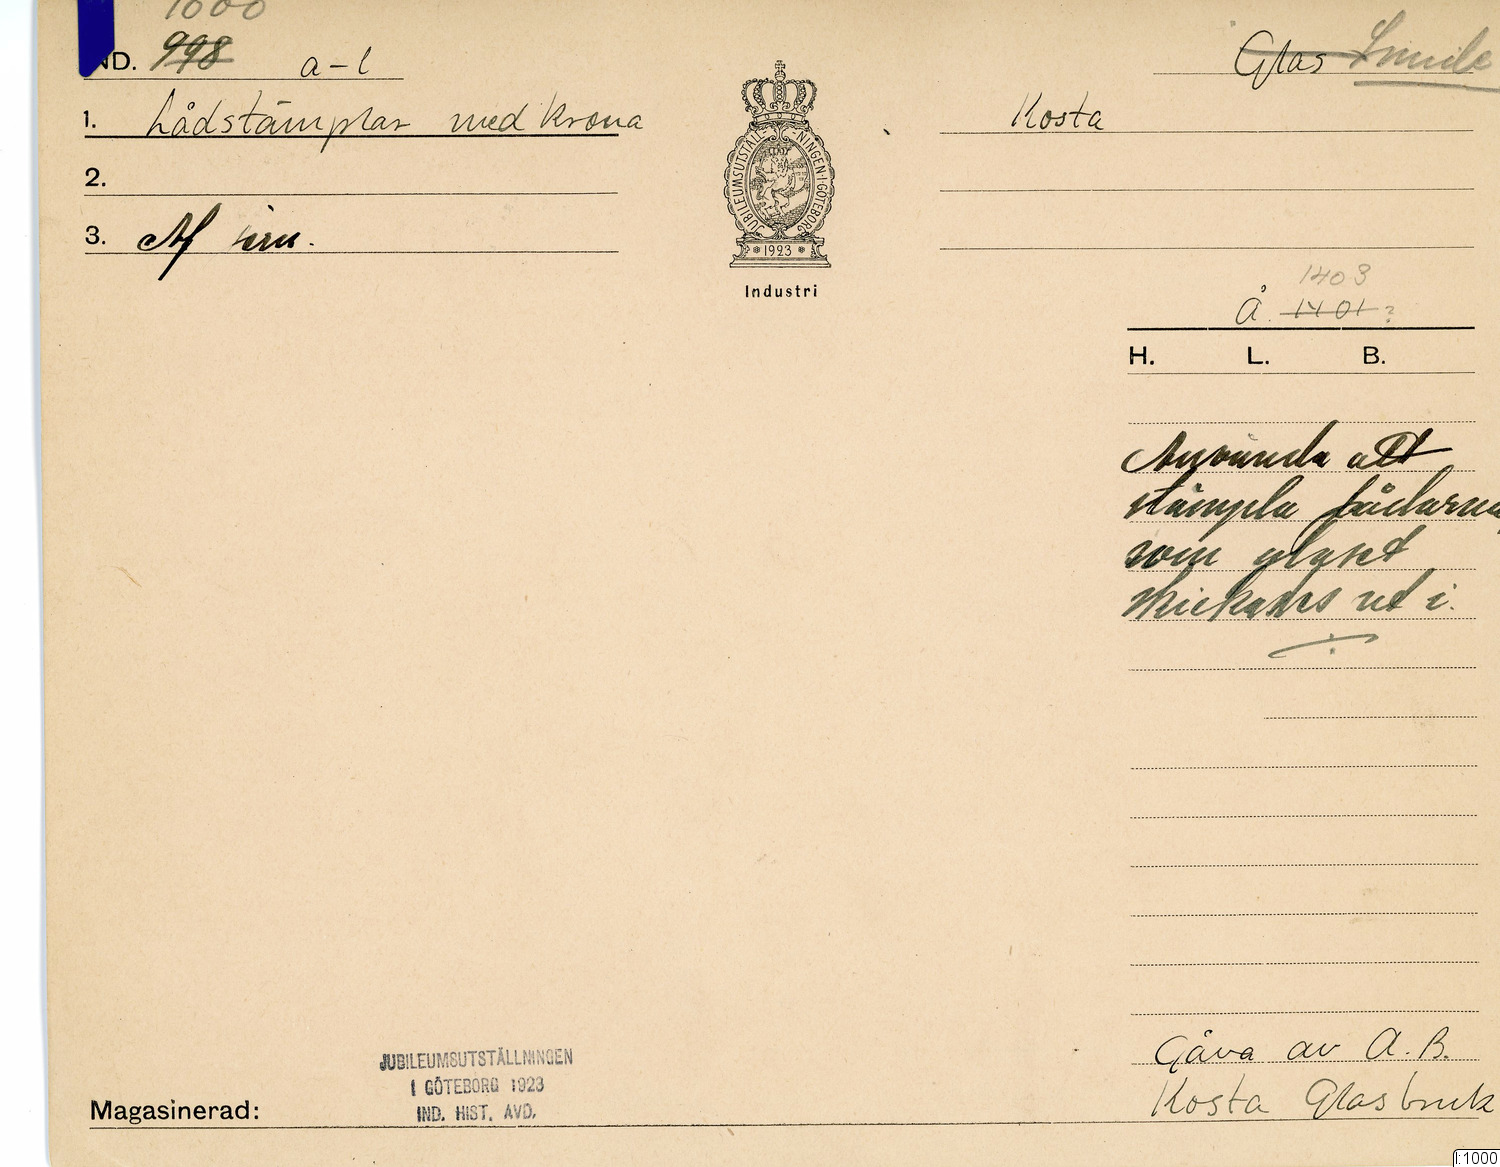 1000
IND. 998 a-l
1. Lådstämplar med krona
2.
3. Af järn.
JUBILEUMSUTSTÄLLNINGEN·I·GÖTEBORG
1923
Industri
Glas Smide
Kosta
1403
Å. 1401 ?
H. L. B.
Använda att
stämpla lådarna,
som glaset
skickades ut i.
Gåva av A.B.
Kosta Glasbruk
JUBILEUMSUTSTÄLLNINGEN
I GÖTEBORG 1923
IND. HIST. AVD.
Magasinerad:
I:1000